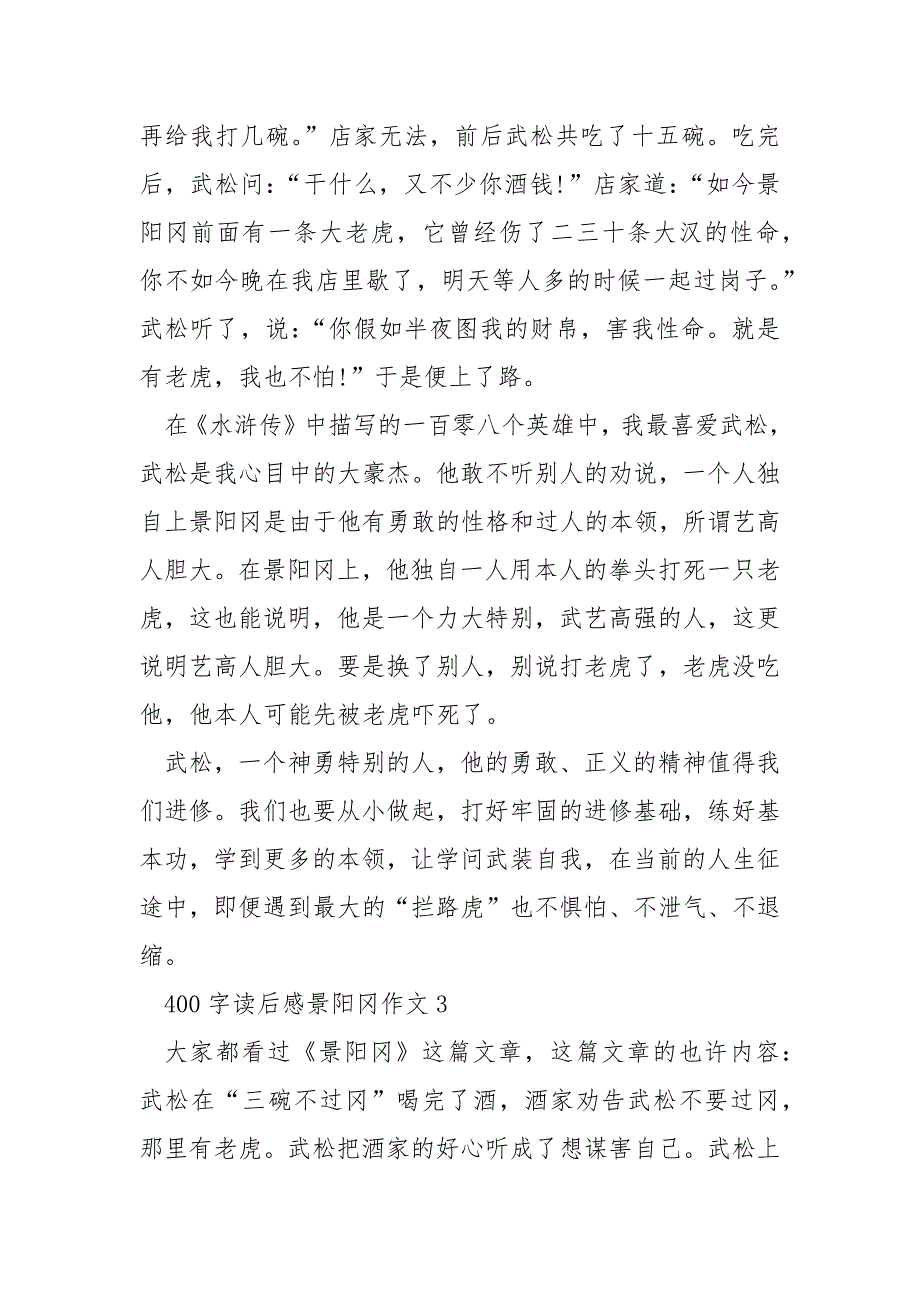 再给我打几碗。”店家无法，前后武松共吃了十五碗。吃完
后，武松问：“干什么，又不少你酒钱！”店家道：“如今景
阳冈前面有一条大老虎，它曾经伤了二三十条大汉的性命，
你不如今晚在我店里歇了，明天等人多的时候一起过岗子。”
武松听了，说：“你假如半夜图我的财帛，害我性命。就是
有老虎，我也不怕！”于是便上了路。
在《水浒传》中描写的一百零八个英雄中，我最喜爱武松，
武松是我心目中的大豪杰。他敢不听别人的劝说，一个人独
自上景阳冈是由于他有勇敢的性格和过人的本领，所谓艺高
人胆大。在景阳冈上，他独自一人用本人的拳头打死一只老
虎，这也能说明，他是一个力大特别，武艺高强的人，这更
说明艺高人胆大。要是换了别人，别说打老虎了，老虎没吃
他，他本人可能先被老虎吓死了。
武松，一个神勇特别的人，他的勇敢、正义的精神值得我
们进修。我们也要从小做起，打好牢固的进修基础，练好基
本功，学到更多的本领，让学问武装自我，在当前的人生征
途中，即便遇到最大的“拦路虎”也不惧怕、不泄气、不退
缩。
400 字读后感景阳冈作文 3
大家都看过《景阳冈》这篇文章，这篇文章的也许内容：
武松在“三碗不过冈”喝完了酒，酒家劝告武松不要过冈，
那里有老虎。武松把酒家的好心听成了想谋害自己。武松上